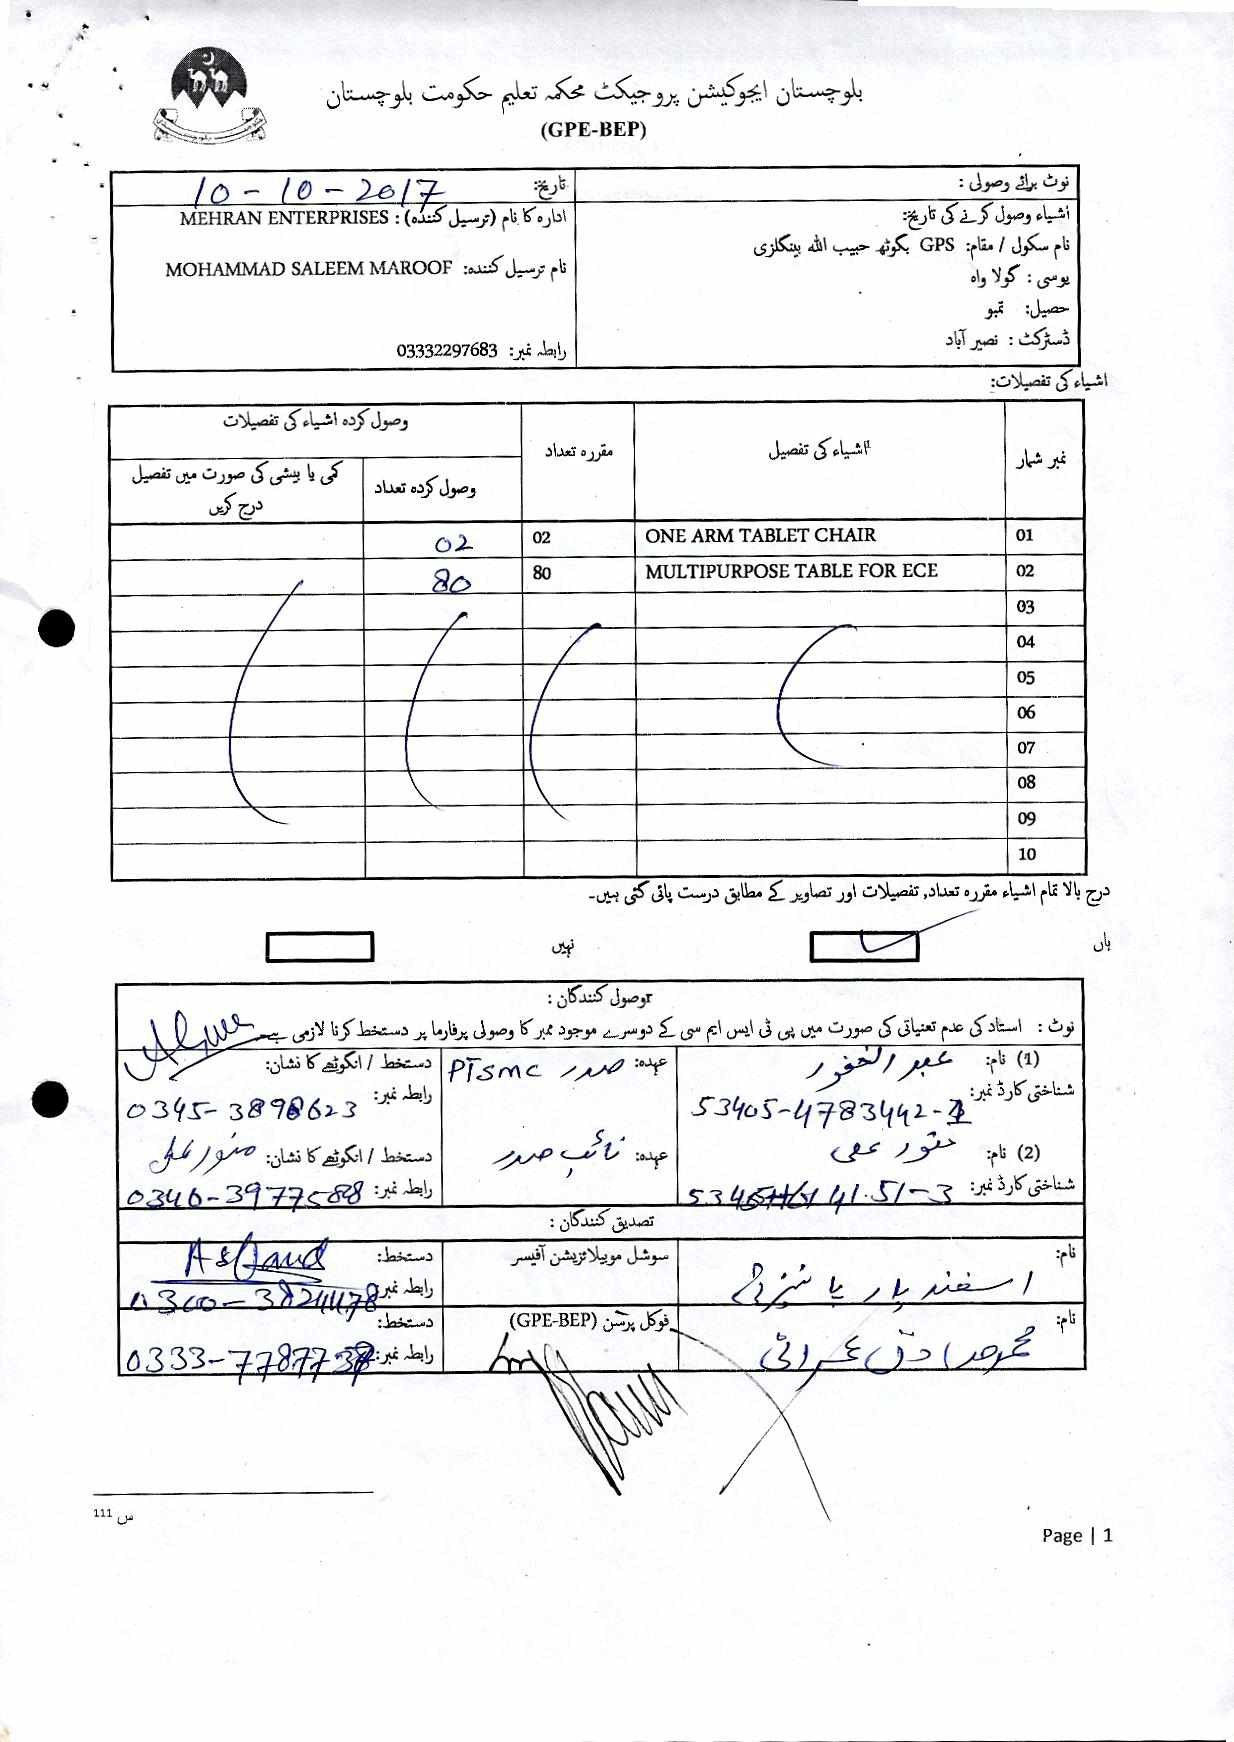 بلوچستان ایجوکیشن پروجیکٹ محکمہ تعلیم حکومت بلوچستان
(GPE-BEP)
نوٹ برائے وصولی :
تاریخ: 10-10-2017
اشیاء وصول کرنے کی تاریخ:
ادارہ کا نام (ترسیل کنندہ) : MEHRAN ENTERPRISES
نام سکول / مقام: GPS بگوٹھ حبیب اللہ بینگلزی
نام ترسیل کنندہ: MOHAMMAD SALEEM MAROOF
یوسی : گولا واہ
حصیل: تمبو
ڈسٹرکٹ : نصیر آباد
رابطہ نمبر: 03332297683
اشیاء کی تفصیلات:
نمبر شمار اشیاء کی تفصیل مقررہ تعداد وصول کردہ اشیاء کی تفصیلات
وصول کردہ تعداد کمی یا بیشی کی صورت میں تفصیل درج کریں
01 ONE ARM TABLET CHAIR 02 02
02 MULTIPURPOSE TABLE FOR ECE 80 80
03
04
05
06
07
08
09
10
درج بالا تمام اشیاء مقررہ تعداد, تفصیلات اور تصاویر کے مطابق درست پائی گئی ہیں۔
ہاں نہیں
وصول کنندگان :
نوٹ : استاد کی عدم تعنیاتی کی صورت میں پی ٹی ایس ایم سی کے دوسرے موجود ممبر کا وصولی پرفارما پر دستخط کرنا لازمی ہے۔
(1) نام: عبدالغفور عہدہ: صدر PTSMC دستخط / انگوٹھے کا نشان:
شناختی کارڈ نمبر: 53405-4783442-1 رابطہ نمبر: 0345-3898623
(2) نام: عہدہ: نائب صدر دستخط / انگوٹھے کا نشان:
شناختی کارڈ نمبر: رابطہ نمبر:
تصدیق کنندگان :
نام: اسفند یار سوشل موبیلائزیشن آفیسر دستخط:
رابطہ نمبر:
نام: محمد صادق عمرانی فوکل پرسن (GPE-BEP) دستخط:
رابطہ نمبر:
111 س
Page | 1